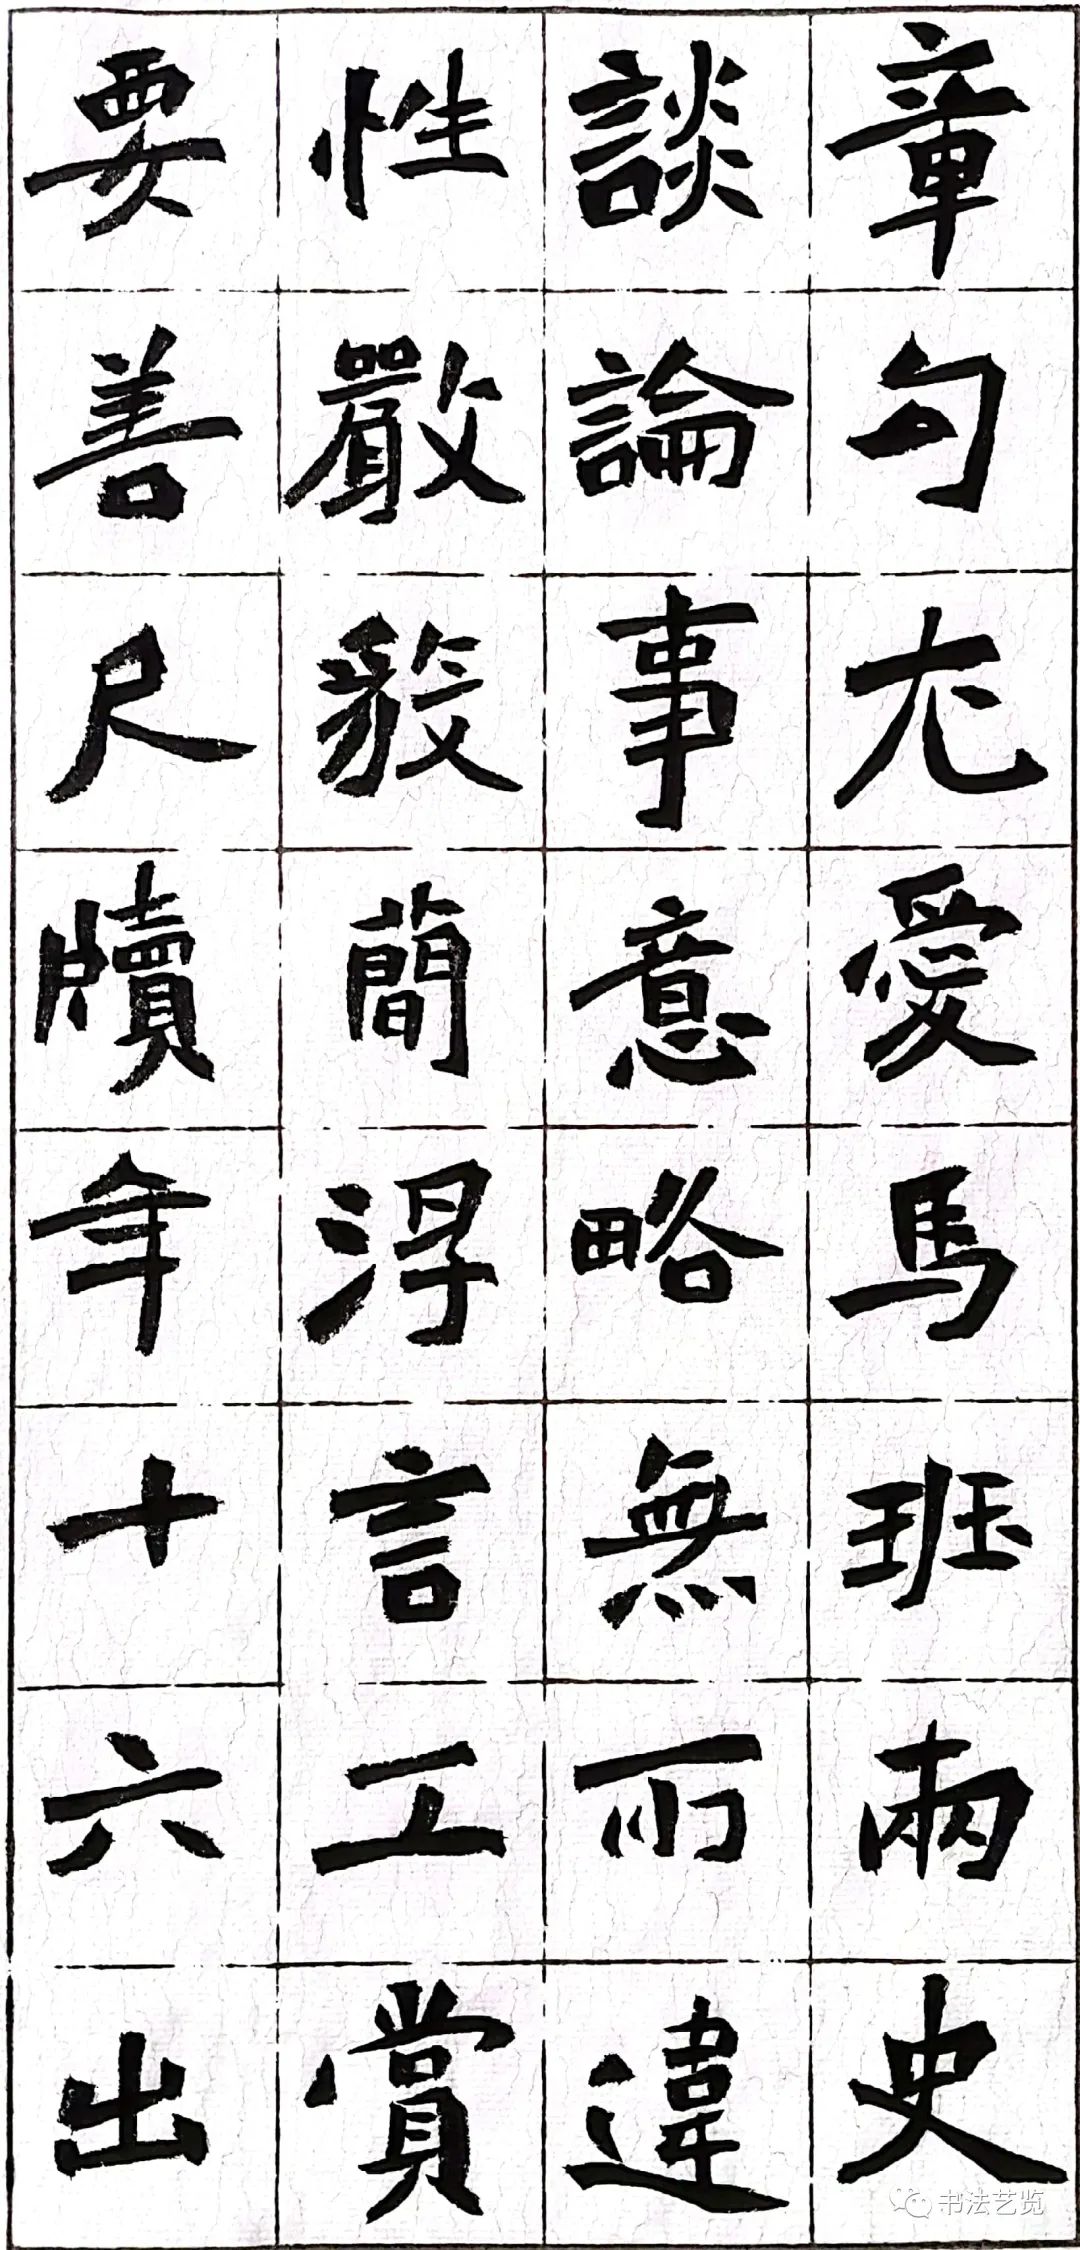 章句尤愛馬班兩史
談論事意略無所違
性嚴毅簡浮言工賞
要善尺牘年十六出
书法艺览